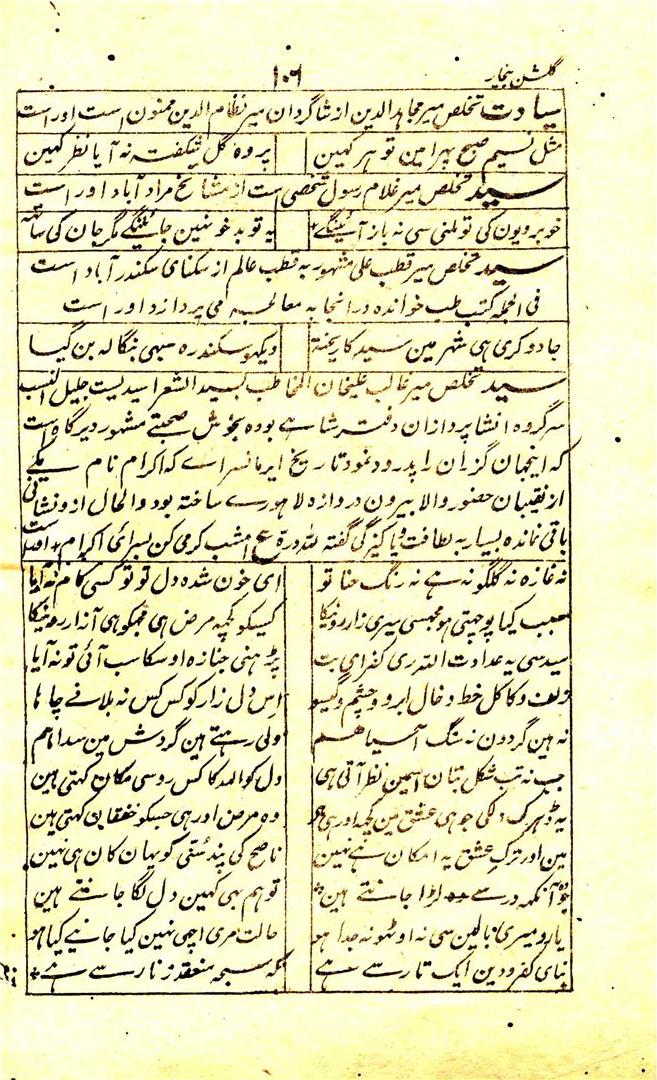 گلشن بیخار
۱۰۶
سیادت تخلص میر مجاہد الدین از شاگردان میر نظام الدین ممنون است اوراست
مثل نسیم صبح پھرا مین تو ہر کہین پر وہ گل شگفتہ نہ آیا نظر کہین
سید تخلص میر غلام رسول شخصی است از مشائخ مراد آباد اوراست
خوبرویون کی تو ملنی سی نہ باز آئینگے یہ تو بد خو نہین جائینگے مگر جان کی ساتھ
سید تخلص میر قطب علی مشہور بہ قطب عالم از سکنای سکندر آباد است
فی الجملہ کتب طب خواندہ در انجا بہ معالجہ می پردازد اوراست
جادوگری ہی شہر مین سید کا ریختہ دیکھو سکندرہ سبھی بنگالہ بن گیا
سید تخلص میر غالب علیخان المخاطب بسید الشعرا سیدیست جلیل النسب
سرگروہ انشا پردازان دفتر شاہے بودہ بخوش صحبتے مشہور دیرگاہ است
کہ اینجہان گزران را پدرود نمود تاریخ سراے کہ اکرام نام یکے
از نقیبان حضور والا بیرون دروازہ لاہورے ساختہ بود والحال ازو نشانی
باقی نماندہ بسیار بہ لطافت و پاکیزگی گفتہ للہ درہ ع امشب کرمی کن بسرای اکرام اوراست
نہ غازہ نہ گلگونہ ہے نہ رنگ حنا تو ای خون شدہ دل تو تو کسی کام نہ آیا
سبب کیا پوچہتی ہو مجہسی میری زار رونیکا کسیکو کچہ مرض ہی مجہکو ہی آزار رونیکا
سید سی یہ عداوت اللہ ری کفر ای بت پڑہنی جنازہ اوسکا سب آئی تو نہ آیا
زلف و کاکل خط و خال ابرو و چشم و گیسو اس دل زار کو کس کس نہ بلا نے چاہا
نہ ہین گردون نہ سنگ آسیا ھم ولی رہتے ہین گردش مین سدا ہم
جب نہ تب شکل بتان اسمین نظر آتی ہی دل کو اللہ کا کس رو سی مکان کہتی ہین
یہ دہڑک دلکی جو ہی عشق مین کچہہ اور ہی ہو وہ مرض اور ہی جسکو خفقان کہتی ہین
مین اور ترک عشق یہ امکان ہے نہین ناصح کی پند سننی کو یہان کان ہی نہین
جو آنکہہ در سے لڑا جانتے ہین تو ہم بھی کہین دل لگا جانتے ہین
یارو میری بالین سی نہ اوٹھو نہ جدا ہو حالت مری اچھی نہین کیا جانیے کیا ہو
بنای کفر و دین ایک تار سے ہے کہ سبحہ منعقد زنار سے ہے